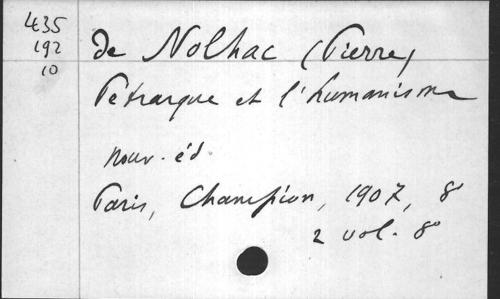 435
192
10
de Nolhac (Pierre)
Pétrarque et l'humanisme
nouv. éd.
Paris, Champion, 1907, 8°
2 vol. 8°